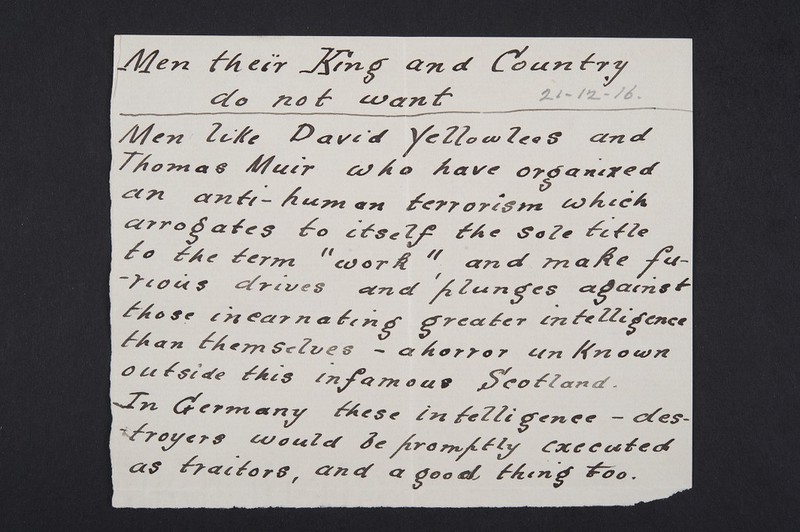 Men their King and Country
do not want 21-12-16.
Men like David Yellowlees and
Thomas Muir who have organized
an anti-human terrorism which
arrogates to itself the sole title
to the term "work" and make fu-
-rious drives and plunges against
those incarnating greater intelligence
than themselves - a horror unknown
outside this infamous Scotland.
In Germany these intelligence - des-
-troyers would be promptly executed
as traitors, and a good thing too.